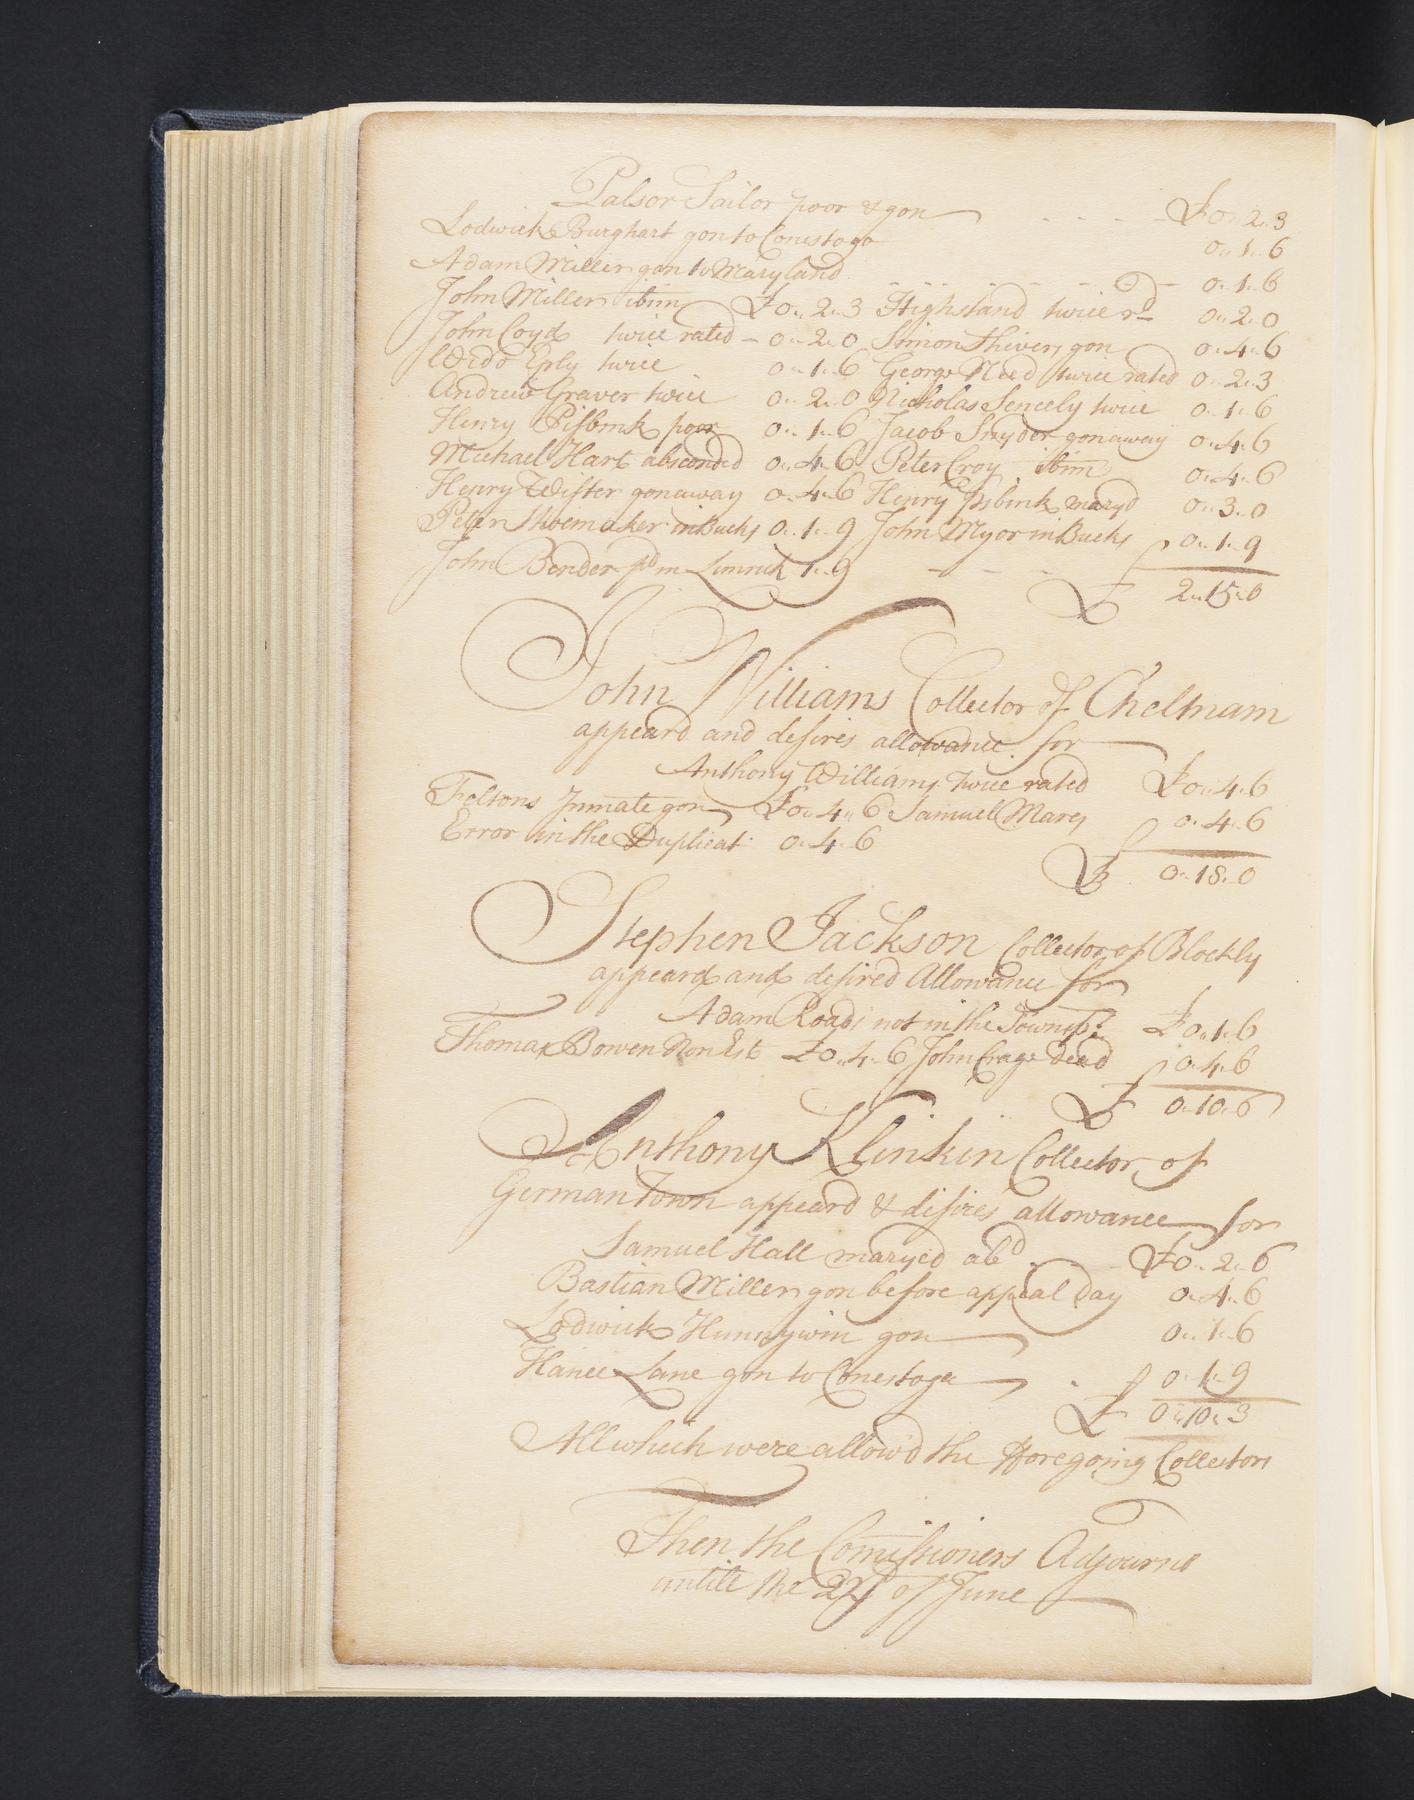 Palsor Sailor poor & gon - - - - £0..2..3
Lodwick Burghart gon to Conestogo 0..1..6
Adam Miller gon to Maryland - - - - - - 0..1..6
John Miller ibim £0..2..3 Highstand twice rd 0..2..0
John Coyd twice rated - 0..2..0 Simon Shivers gon 0..4..6
Wido Eply twice 0..1..6 George Need twice rated 0..2..3
Andrew Graver twice 0..2..0 Nicholas Sencely twice 0..1..6
Henry Pisbink poor 0..1..6 Jacob Snyder gon away 0..4..6
Michael Hart absconded 0..4..6 Peter Croy ibim 0..4..6
Henry Wister gon away 0..4..6 Henry Pisbink maryd 0..3..0
Peter Shoemaker in Bucks 0..1..9 John Myor in Bucks 0..1..9
John Bender pd in Limrick 1..9 - - - £ 2..15..0
John Williams Collector of Cheltnam
appeard and desires allowance for
Anthony Williams twice rated £0..4..6
Feltons Inmate gon £0..4..6 Samuel Mares 0..4..6
Error in the Duplicat 0..4..6
£ 0..18..0
Stephen Jackson Collector of Blockly
appeard and desired Allowance for
Adam Roads not in the Townsp: £0..1..6
Thomas Bowen Non Est £0..4..6 John Crage dead 0..4..6
£ 0..10..6
Anthony Klinkin Collector of
Germantown appeard & desires allowance for
Samuel Hall maryed abd £0..2..6
Bastian Miller gon before appeal day 0..4..6
Lodwick Hunnywin gon 0..1..6
Hance Lane gon to Conestoga 0..1..9
£ 0..10..3
All which were allow'd the fforegoing Collectors
Then the Comissioners Adjourne
untill the of June